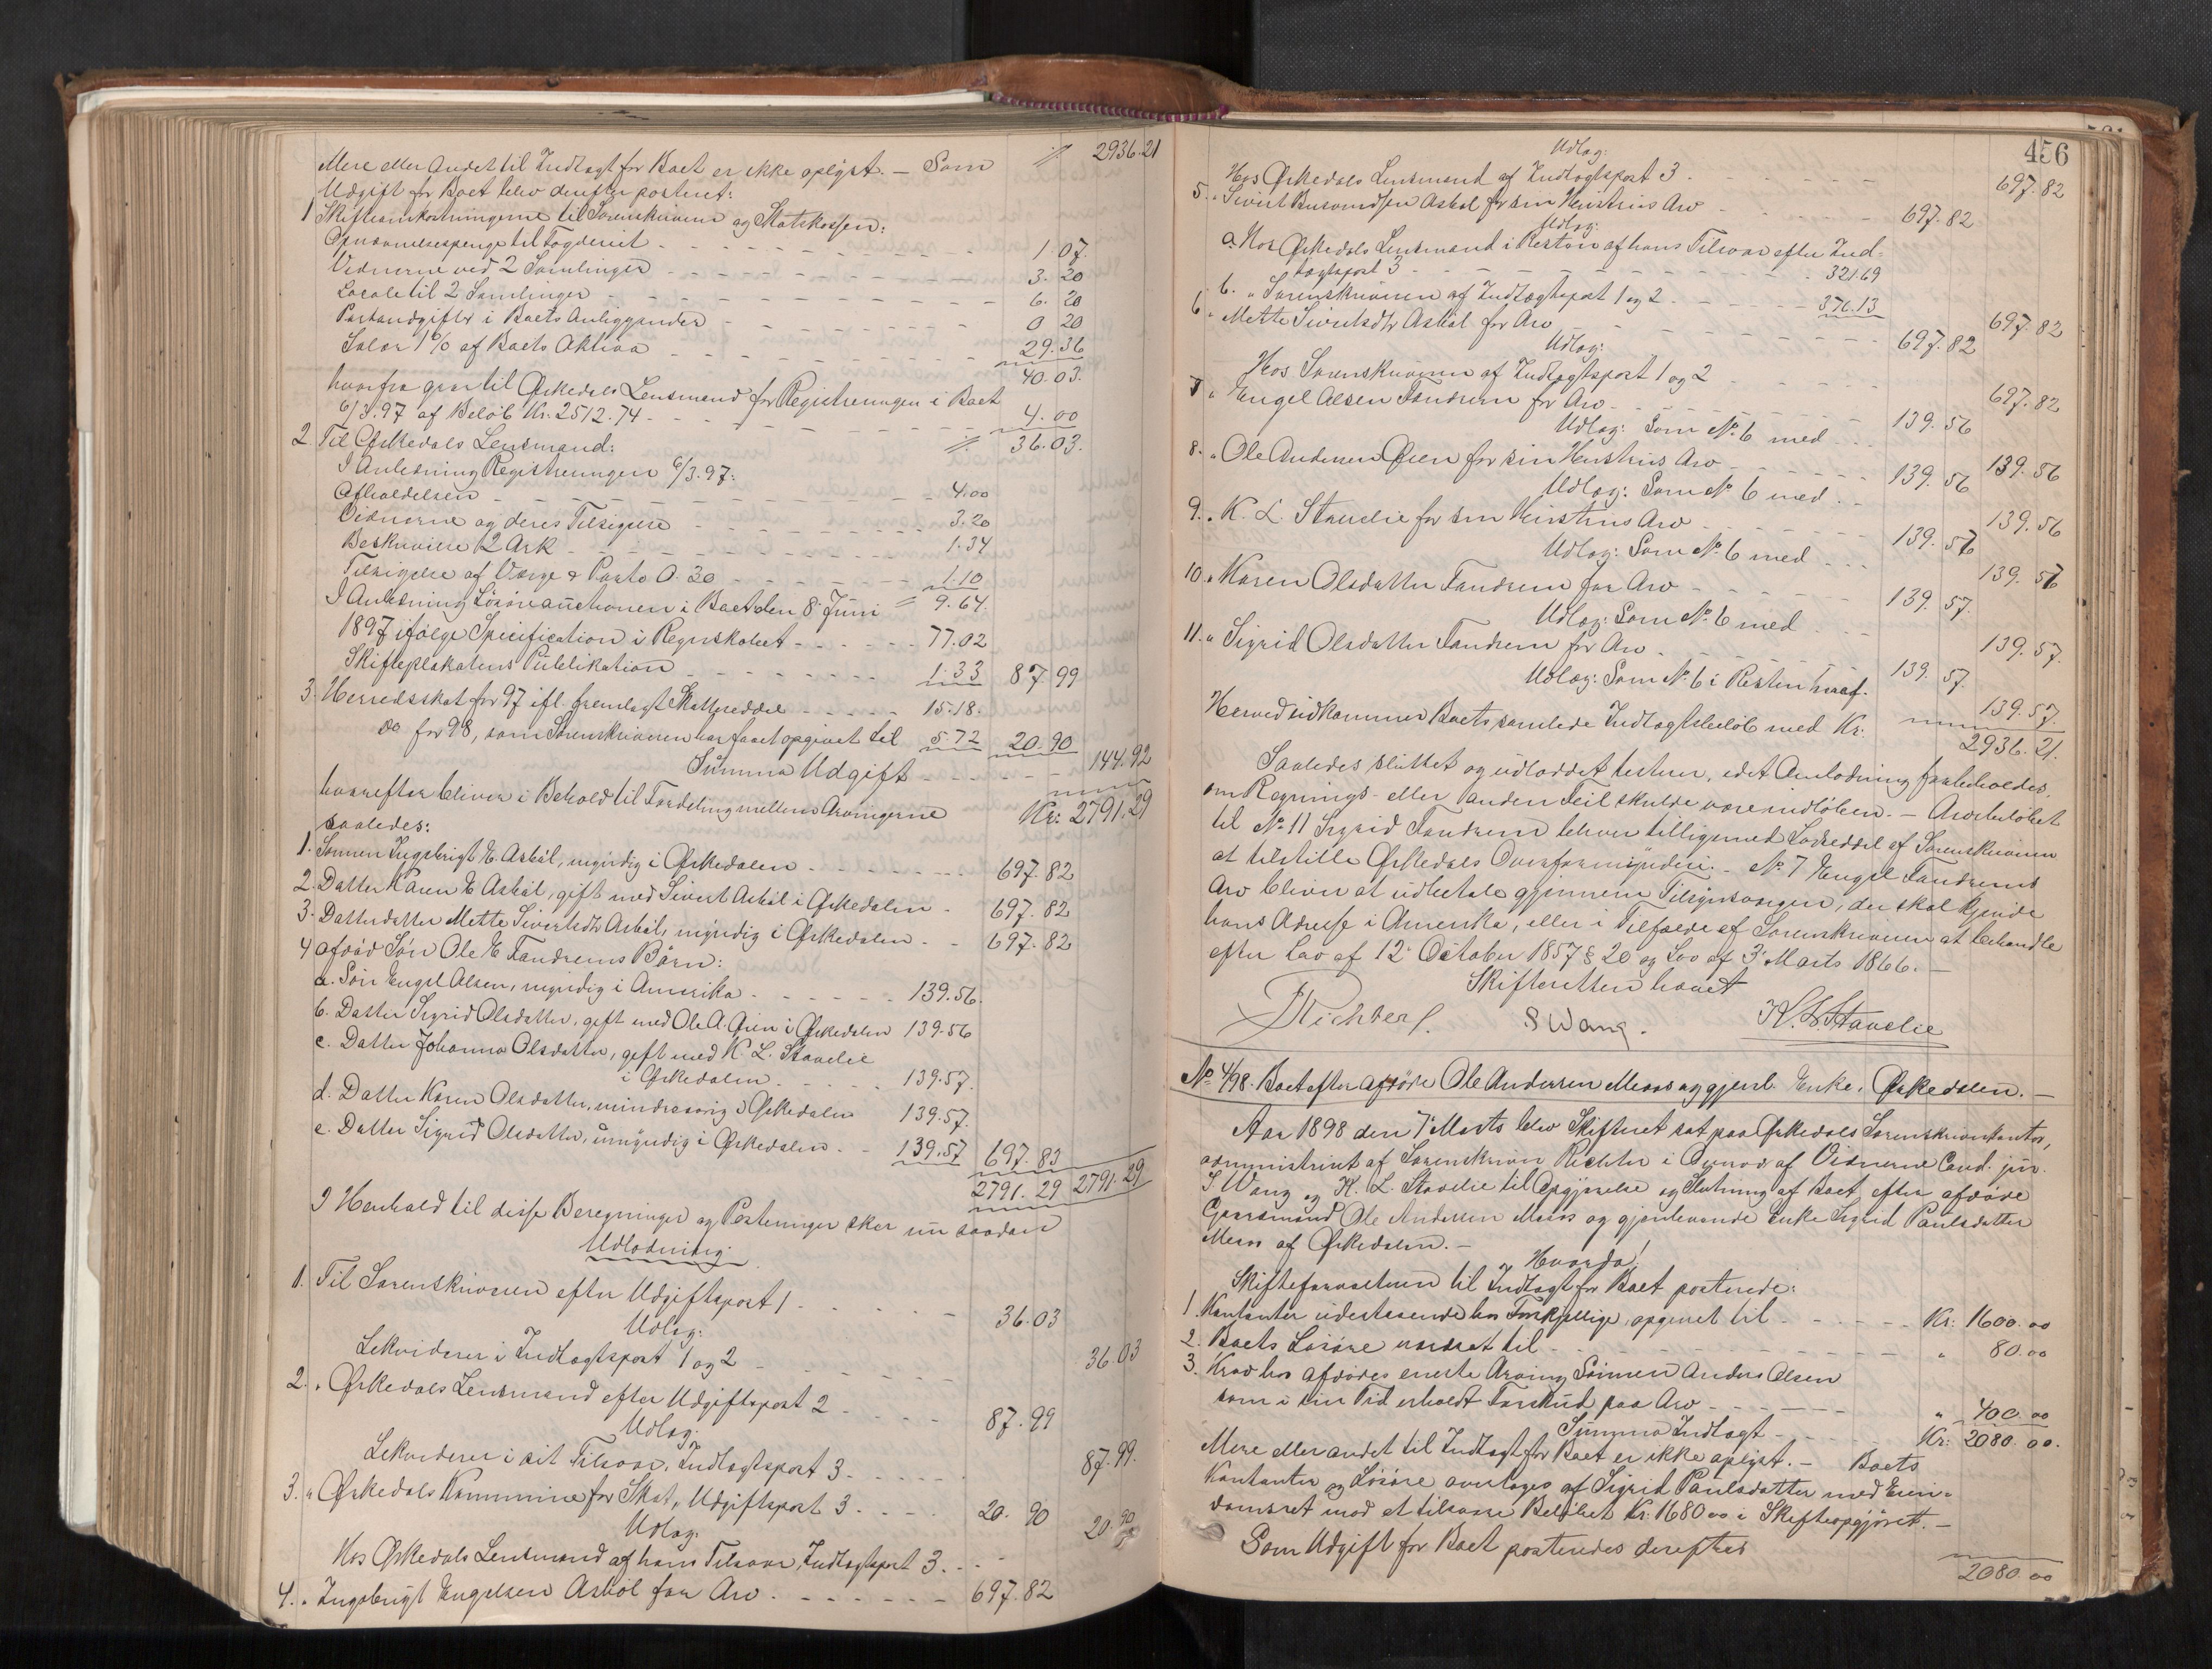 Mere eller andet til Indtægt for Boet er ikke oplyst. — Som // 2936.21
Udgift for Boet blev derefter posteret:
1 Skifteomkostningerne til Sorenskriveren og Statskassen:
Opnævnelsespenge til Fogderiet 1.07.
Vidnerne ved 2 Samlinger 3.20
Locale til 2 Samlinger 6.20
Portoudgifter i Boets Anliggender 0 20
Salær 1% af Boets Aktiva 29.36
40.03.
hvorfra gaar til Ørkedals Lensmand for Registreringen i Boet
6/3.97 af Beløb Kr. 2512.74 4.00
// 36.03.
2. Til Ørkedals Lensmand:
I Anledning Registreringen 6/3.97:
Afholdelsen 4.00
Vidnerne og deres Tilsigelse 3.20
Beskrivelse 2 Ark 1.34
Tilsigelse af Værge & Porto 0.30 1.10
// 9.64.
I Anledning Løsøreauctionen i Boet den 8 Juni
1897 ifølge Specification i Regnskabet 77.02
Skifteplakatens Publikation 1.33 87.99
3. Herredsskat for 97 ifl. fremlagt Skatteseddel 15.18.
do for 98, som Sorenskriveren har faaet opgivet til 5.72 20.90
Summa Udgift 144.92
hvorefter bliver i Behold til Fordeling mellem Arvingerne Kr: 2791.29
saaledes:
1. Sønnen Ingebrigt E. Asbøl, myndig i Ørkedalen 697.82
2. Datter Karen E Asbøl, gift med Sivert Asbøl i Ørkedalen 697.82
3. Datterdatter Mette Sivertsdtr Asbøl, myndig i Ørkedalen 697.82
4 afdød Søn Ole E Fandrems Børn:
a. Søn Engel Olsen, myndig i Amerika 139.56.
b. Datter Sigrid Olsdatter, gift med Ole A. Øien i Ørkedalen 139.56
c. Datter Johanna Olsdatter, gift med K. L. Stavelie
i Ørkedalen 139.57.
d. Datter Karen Olsdatter, mindreaarig i Ørkedalen 139.57.
e. Datter Sigrid Olsdatter, umyndig i Ørkedalen 139.57 697.83
2791.29 2791.29
I Henhold til disse Beregninger og Posteringer sker nu saadan
Udlodning:
1. Til Sorenskriveren efter Udgiftspost 1 36.03
Udlæg:
Lekviderer i Indtægtspost 1 og 2 36.03
2. " Ørkedals Lensmand efter Udgiftspost 2 87.99
Udlæg:
Lekviderer i sit Tilsvar, Indtægtspost 3. 87.99.
3. " Ørkedals Kommune for Skat, Udgiftspost 3. 20. 90
Udlæg:
Hos Ørkedals Lensmand af hans Tilsvar, Indtægtspost 3. 20.90
4. " Ingebrigt Engelsen Asbøl for Arv. 697.82
456
Udlæg:
Hos Ørkedals Lensmand af Indtægtspost 3. 697.82
5. " Sivert Asbøl for sin Hustrus Arv 697.82
Udlæg:
a. Hos Ørkedals Lensmand i Resten af hans Tilsvar efter Ind-
tægtspost 3 321.69
b. " Sorenskriveren af Indtægtspost 1 og 2 376.13 697.82
6 " Mette Sivertsdtr Asbøl for Arv 697.82
Udlæg:
Hos Sorenskriveren af Indtægtspost 1 og 2 697.82
7 " Engel Olsen Fandrem for Arv 139.56
Udlæg: Som No. 6 med 139.56
8. " Ole Andersen Øien for sin Hustrus Arv 139.56
Udlæg: Som No 6 med 139.56
9. " K. L. Stavelie for sin Hustrus Arv 139.57
Udlæg: Som No. 6 med 139.57
10. " Karen Olsdatter Fandrem for Arv 139.57.
Udlæg: Som No. 6 med 139.57.
11. " Sigrid Olsdatter Fandrem for Arv 139.57.
Udlæg: Som No. 6 i Resten heraf. 139.57.
Herved udkommer Boets samlede Indtægtsbeløb med Kr: 2936.21.
Saaledes sluttet og udloddet herhen, idet Anlodning forbeholdes,
om Regnings- eller anden Feil skulde være indløben. — Arvebeløbet
til No. 11 Sigrid Fandrem bliver tilligemed Lodseddel af Sorenskriveren
at tilstille Ørkedals Overformynderi. — No. 7 Engel Fandrems
Arv bliver at udbetale gjennem Tilsynsværgen, der skal kjende
hans Adresse i Amerika, eller i Tilfælde af Sorenskriveren at behandle
efter Lov af 12 October 1857 § 20 og Lov af 3 Marts 1866. —
Skifteretten hævet
Richter. S Wang. K. L. Stavelie
No. 4/98. Boet efter afdøde Ole Andersen Moos og gjenl. Enke, Ørkedalen. —
Aar 1898 den 7 Marts blev Skifteret sat paa Ørkedals Sorenskriverkontor,
administreret af Sorenskriver Richter i Overvær af Vidnerne Cand. jur.
S. Wang og K. L. Stavelie til Opgjørelse og Slutning af Boet efter afdøde
Gaardmand Ole Andersen Moos og gjenlevende Enke Sigrid Paulsdatter
Moos af Ørkedalen. —
Hvorda!
Skifteforvalteren til Indtægt for Boet posterede:
1. Kontanter udestaaende hos Forskjellige, opgivet til Kr: 1600.00
2. Boets Løsøre vurderet til " 80.00
3. Krav hos afdødes eneste Arving Sønnen Anders Olsen
som i sin Tid erholdt Forskud paa Arv " 400.00
Summa Indtægt Kr: 2080.00.
Mere eller andet til Indtægt for Boet er ikke oplyst. — Boets
Kontanter og Løsøre overtages af Sigrid Paulsdatter med Eien-
domsret mod at tilsvare Beløbet Kr. 1680 00 i Skifteopgjøret. —
Som Udgift for Boet posteredes derefter
2080.00